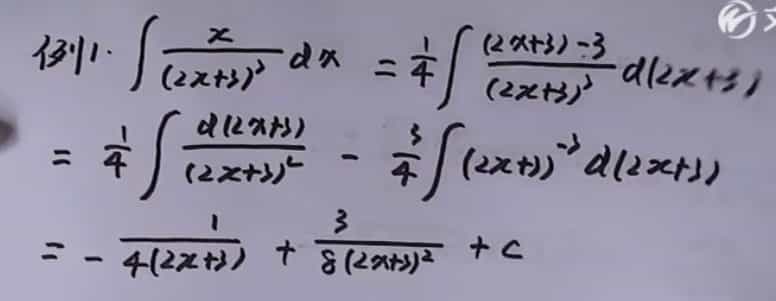 例1. ∫ x/(2x+3)³ dx = 1/4 ∫ ((2x+3)-3)/(2x+3)³ d(2x+3)
= 1/4 ∫ d(2x+3)/(2x+3)² - 3/4 ∫ (2x+3)⁻³ d(2x+3)
= - 1/(4(2x+3)) + 3/(8(2x+3)²) + c